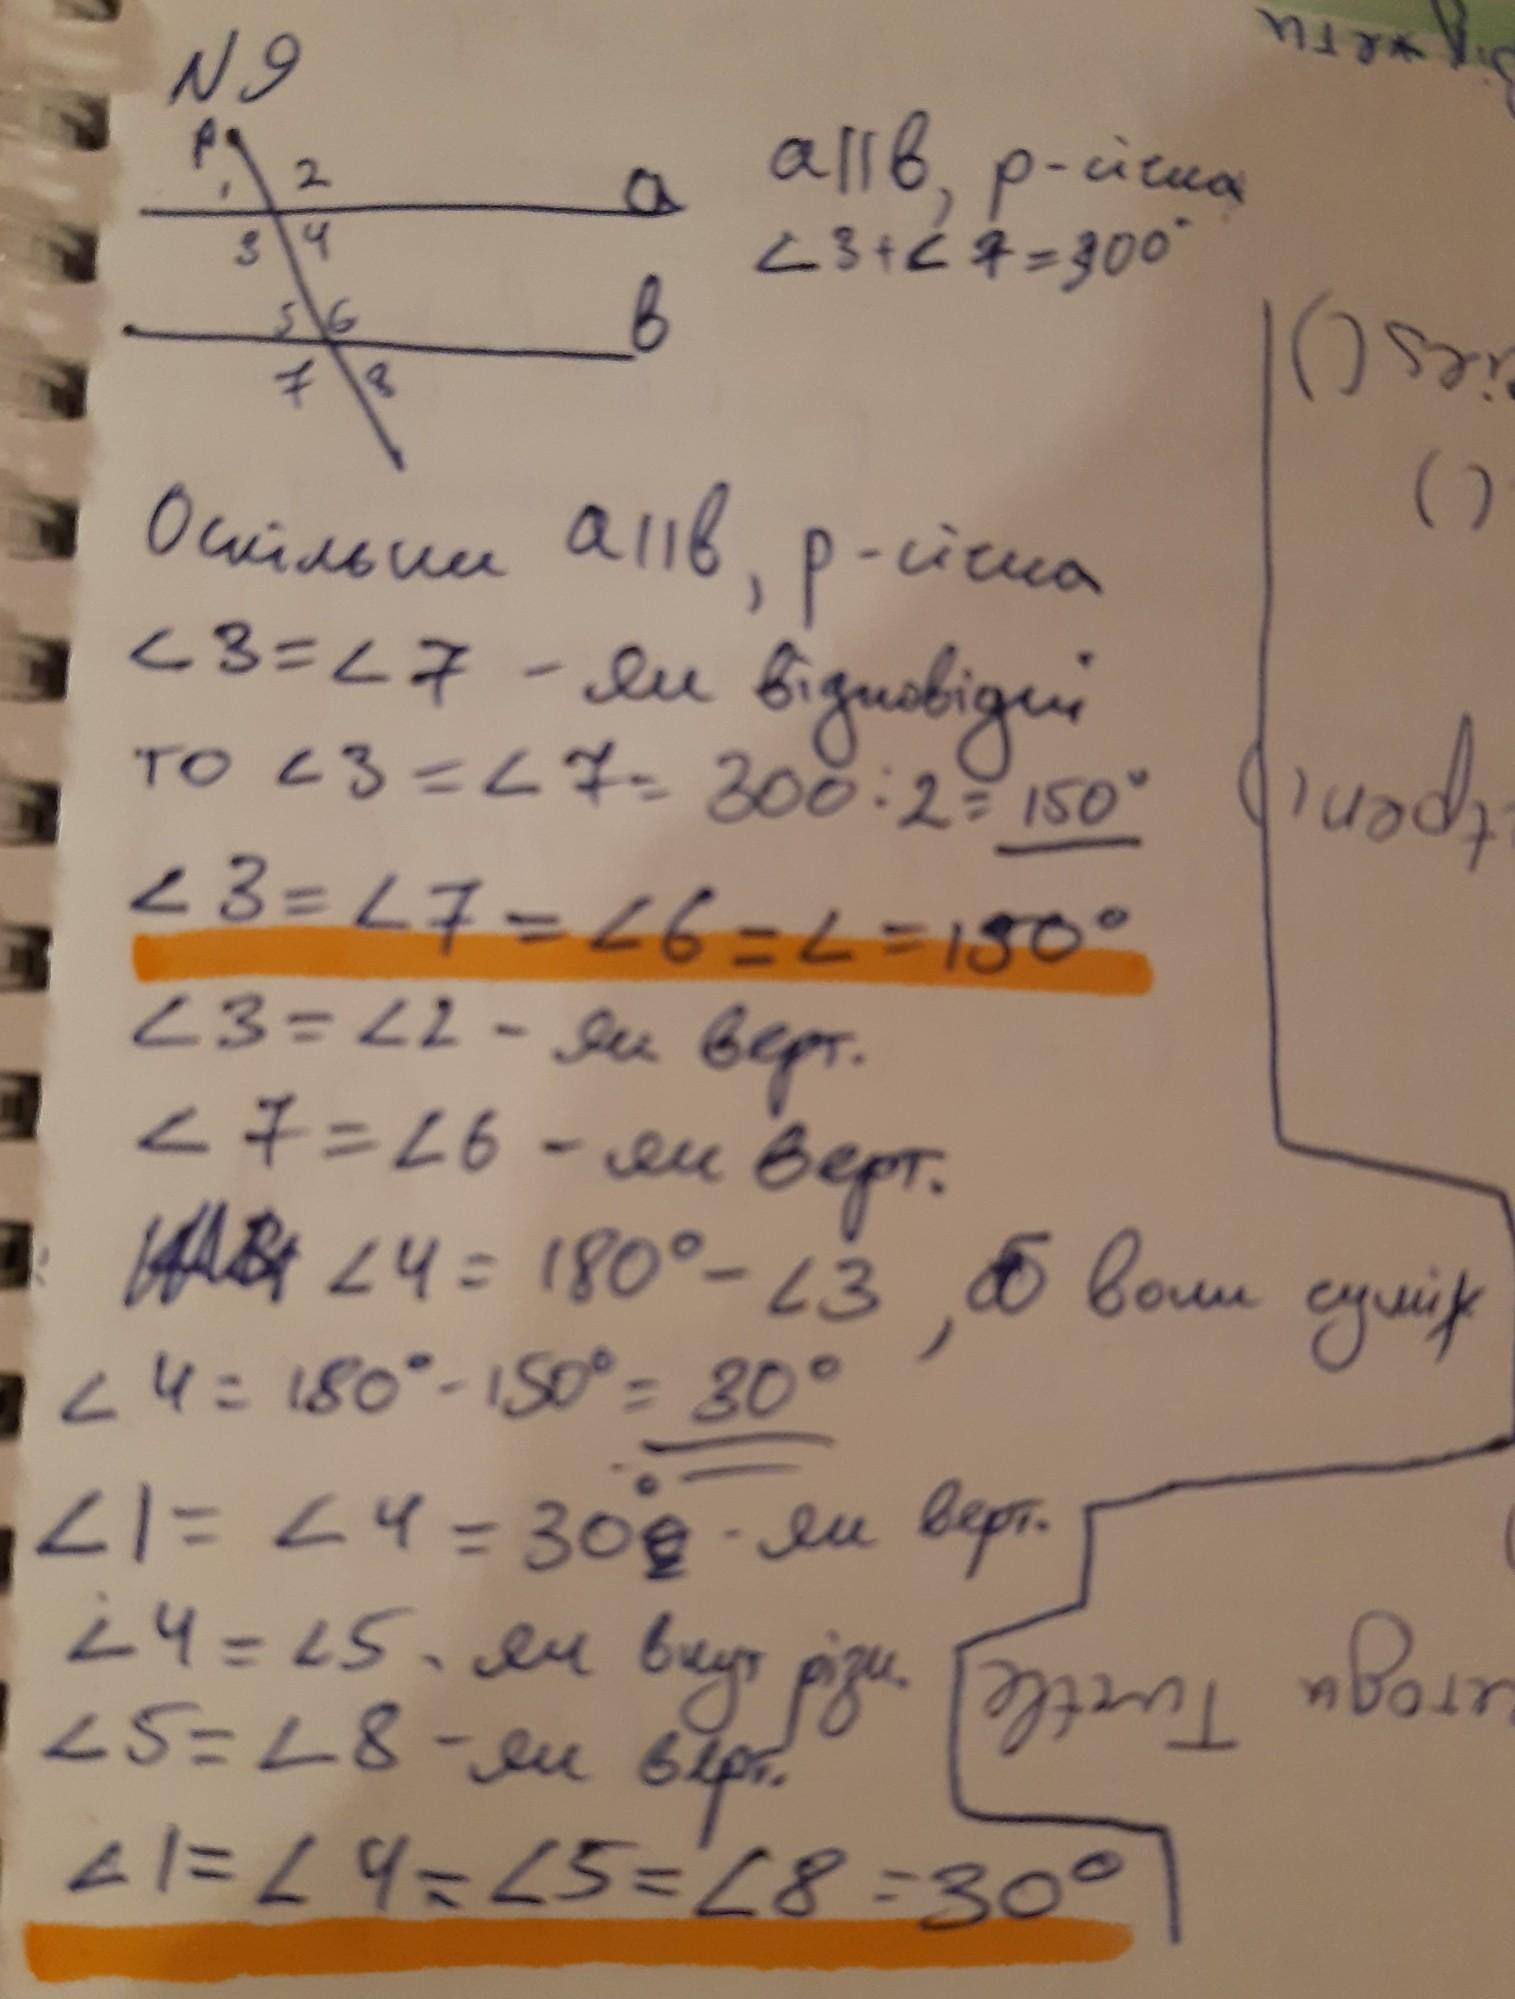 N 9
p
1 2
a
3 4
5 6
в
7 8
a||в, p-січна
∠3+∠7=300°
Оскільки a||в, p-січна
∠3=∠7 - як відповідні
то ∠3=∠7= 300:2= 150°
∠3=∠7=∠6=∠=150°
∠3=∠2 - як верт.
∠7=∠6 - як верт.
∠4= 180°-∠3, бо вони суміж
∠4= 180°-150°= 30°
∠1= ∠4= 30° - як верт.
∠4=∠5 - як внут різн.
∠5=∠8 - як верт.
∠1=∠4=∠5=∠8=30°
Turtle
()